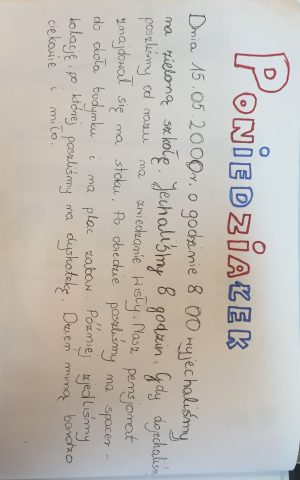 PONIEDZIAŁEK
Dnia 15.05.2000r. o godzinie 8 00 wyjechaliśmy
na zieloną szkołę. Jechaliśmy 8 godzin. Gdy dojechaliśmy
poszliśmy od razu na zwiedzanie Wisły. Nasz pensjonat
znajdował się na stoku. Po obiedzie poszliśmy na spacer -
do dołu budynku i na plac zabaw. Później zjedliśmy
kolację, po której poszliśmy na dyskotekę. Dzień minął bardzo
ciekawie i miło.